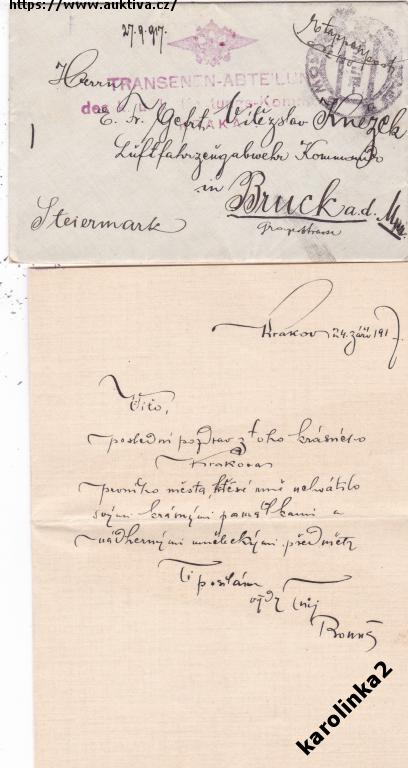 https://www.auktiva.cz/
27.9.917.
Etappenpost
TRANSENEN-ABTEILUNG
Herrn
des
E. Fr. Gefrt. Vítězslav Knězek
Luftfahrzeugabwehr Kommando
in
Bruck a.d. Mur.
Steiermark
Krakov 24. září 1917.
Víťo,
poslední pozdrav z toho krásného
Krakova
prvního města, které mně uchvátilo
svými krásnými památkami a
nádhernými uměleckými předměty
Ti posílám
vždy Tvůj
karolinka2